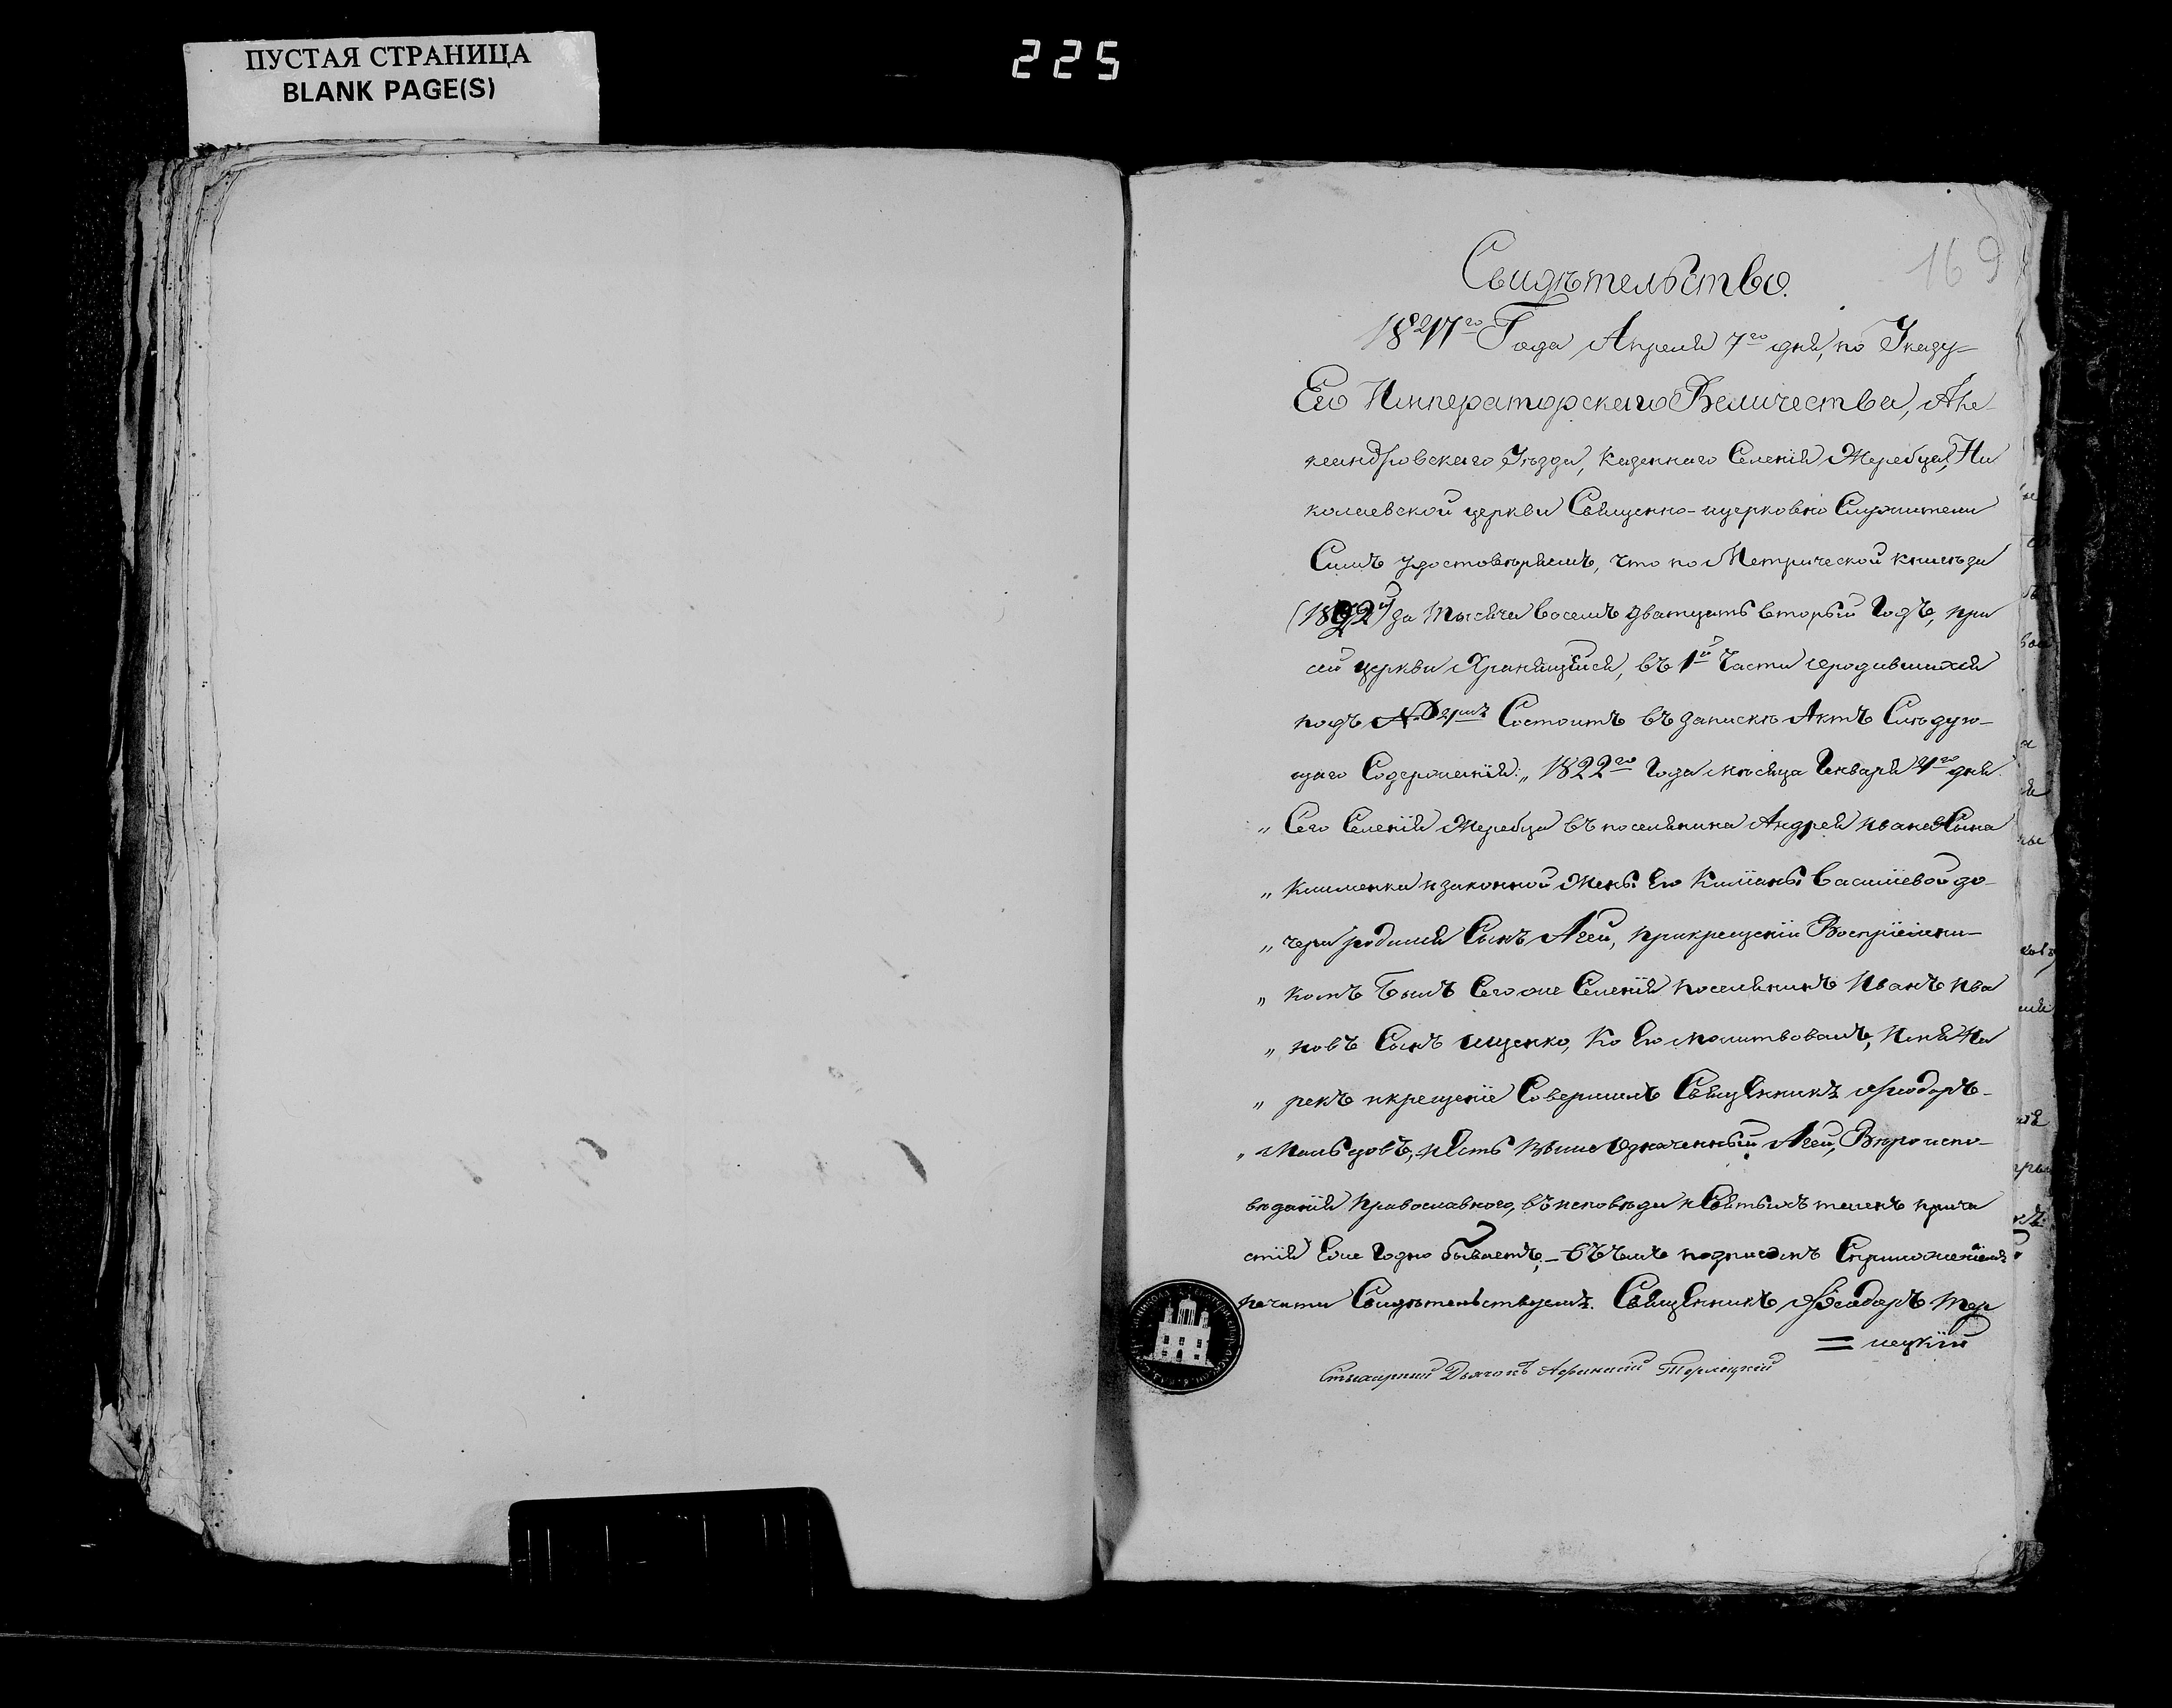 ПУСТАЯ СТРАНИЦА
BLANK PAGE(S)
225
169
Свидѣтельство.
1847го Года Апреля 7го дня, по Указу
Его Императорскаго Величества, Але-
ксандровскаго Уѣзда, Казеннаго Селенія Жеребца, Ни
колаевской церкви Священно-ицерковно Служители
Симъ удостовѣряемъ, что по Метрической книгѣ за
(1822й) за тысяча восемъ дватцать вторый Годъ, при
сей церкви Хранящейся, въ 1й Части ородившихся
подъ № Состоитъ въ запискѣ Актъ Слѣдую-
щаго Содержанія: „ 1822го Года мѣсяца Генваря 4го дня
„ Сего Селенія Жеребца въ поселянина Андрея Иванова Сына
„ Клименка и законной Жены Его Киліаны Василіевой до-
„ чери родился Сынъ Агей, прикрещеніи Воспріемни-
„ комъ былъ Сегоже Селенія поселянинъ Иванъ Ива
„ новъ Сынъ Ищенко, Ко Его молитвовалъ, Имя На
„ рекъ икрещеніе Совершилъ Священникъ Феодоръ-
„ Мальцовъ, иЕсть вышеозначенный Агей, Вѣроиспо-
вѣданія Православного, въ исповѣди и Святыхъ таинъ прича
стія Еже Годно бываетъ, - въ чемъ подписомъ Сприложеніемъ
печати Свидѣтельствуемъ. Священникъ Феодоръ Тер
= лецкій
Стихарный Дьячокъ Афанасій Терлецкій